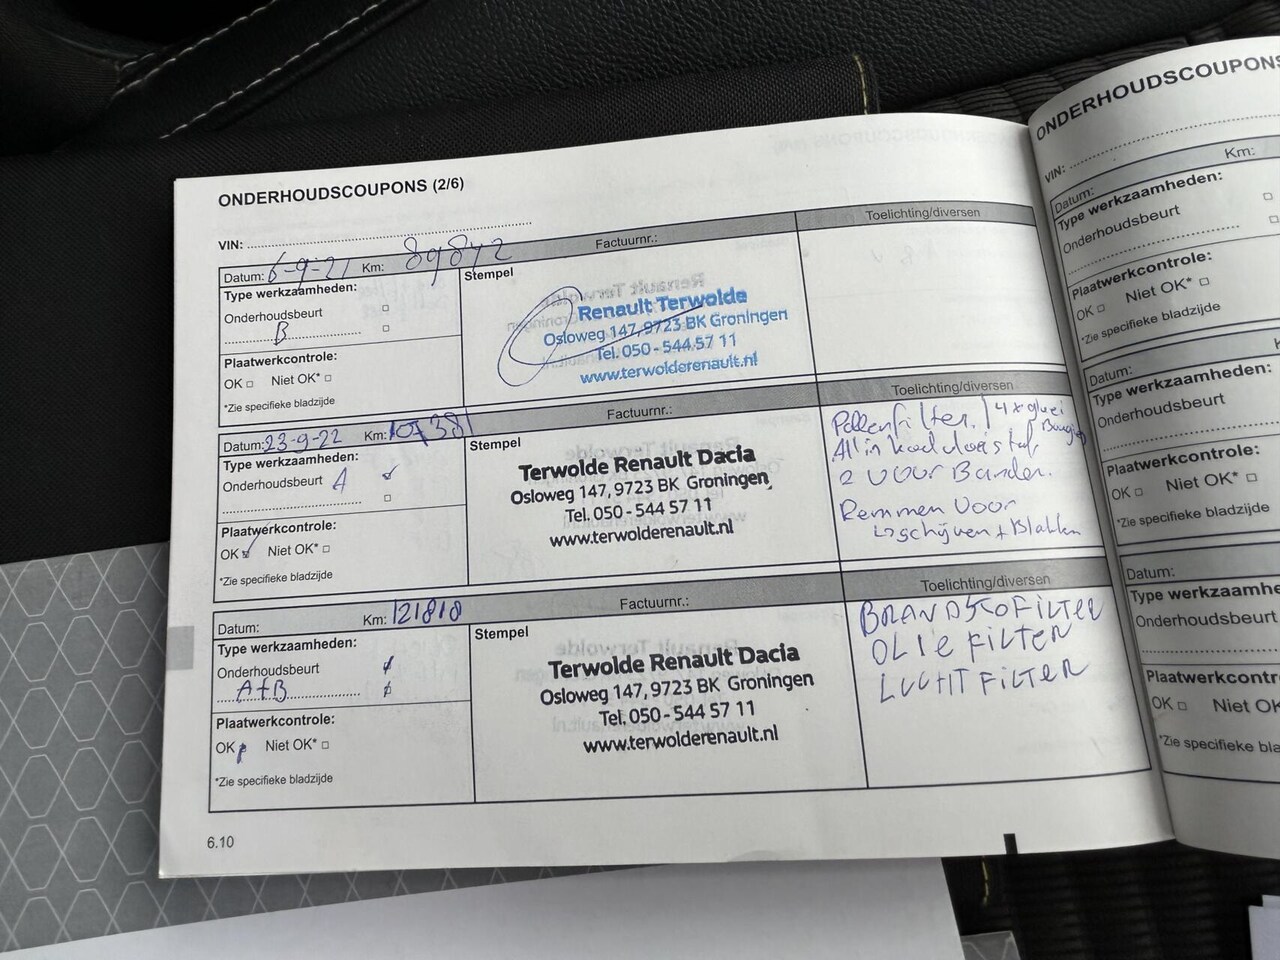 ONDERHOUDSCOUPONS (2/6)
VIN:
Datum: 6-9-21 Km: 89842 Factuurnr.: Toelichting/diversen
Type werkzaamheden:
Onderhoudsbeurt
B
Plaatwerkcontrole:
OK Niet OK*
*Zie specifieke bladzijde
Stempel
Renault Terwolde
Osloweg 147, 9723 BK Groningen
Tel. 050 - 544 57 11
www.terwolderenault.nl
Datum: 23-9-22 Km: 107381 Factuurnr.: Toelichting/diversen
Type werkzaamheden:
Onderhoudsbeurt A
Plaatwerkcontrole:
OK Niet OK*
*Zie specifieke bladzijde
Stempel
Terwolde Renault Dacia
Osloweg 147, 9723 BK Groningen
Tel. 050 - 544 57 11
www.terwolderenault.nl
Pollenfilter. 4x gloei
Bougies
All in
2 Voor Banden.
Remmen Voor
schijven + Blokken
Datum: Km: 121818 Factuurnr.: Toelichting/diversen
Type werkzaamheden:
Onderhoudsbeurt
A+B
Plaatwerkcontrole:
OK Niet OK*
*Zie specifieke bladzijde
Stempel
Terwolde Renault Dacia
Osloweg 147, 9723 BK Groningen
Tel. 050 - 544 57 11
www.terwolderenault.nl
BRANDSTOFILTER
OLIE FILTER
LUCHT FILTER
6.10
ONDERHOUDSCOUPONS
VIN:
Datum: Km:
Type werkzaamheden:
Onderhoudsbeurt
Plaatwerkcontrole:
OK Niet OK*
*Zie specifieke bladzijde
Datum:
Type werkzaamheden:
Onderhoudsbeurt
Plaatwerkcontrole:
OK Niet OK*
*Zie specifieke bladzijde
Datum:
Type
Onderhoudsbeurt
OK Niet
*Zie specifieke